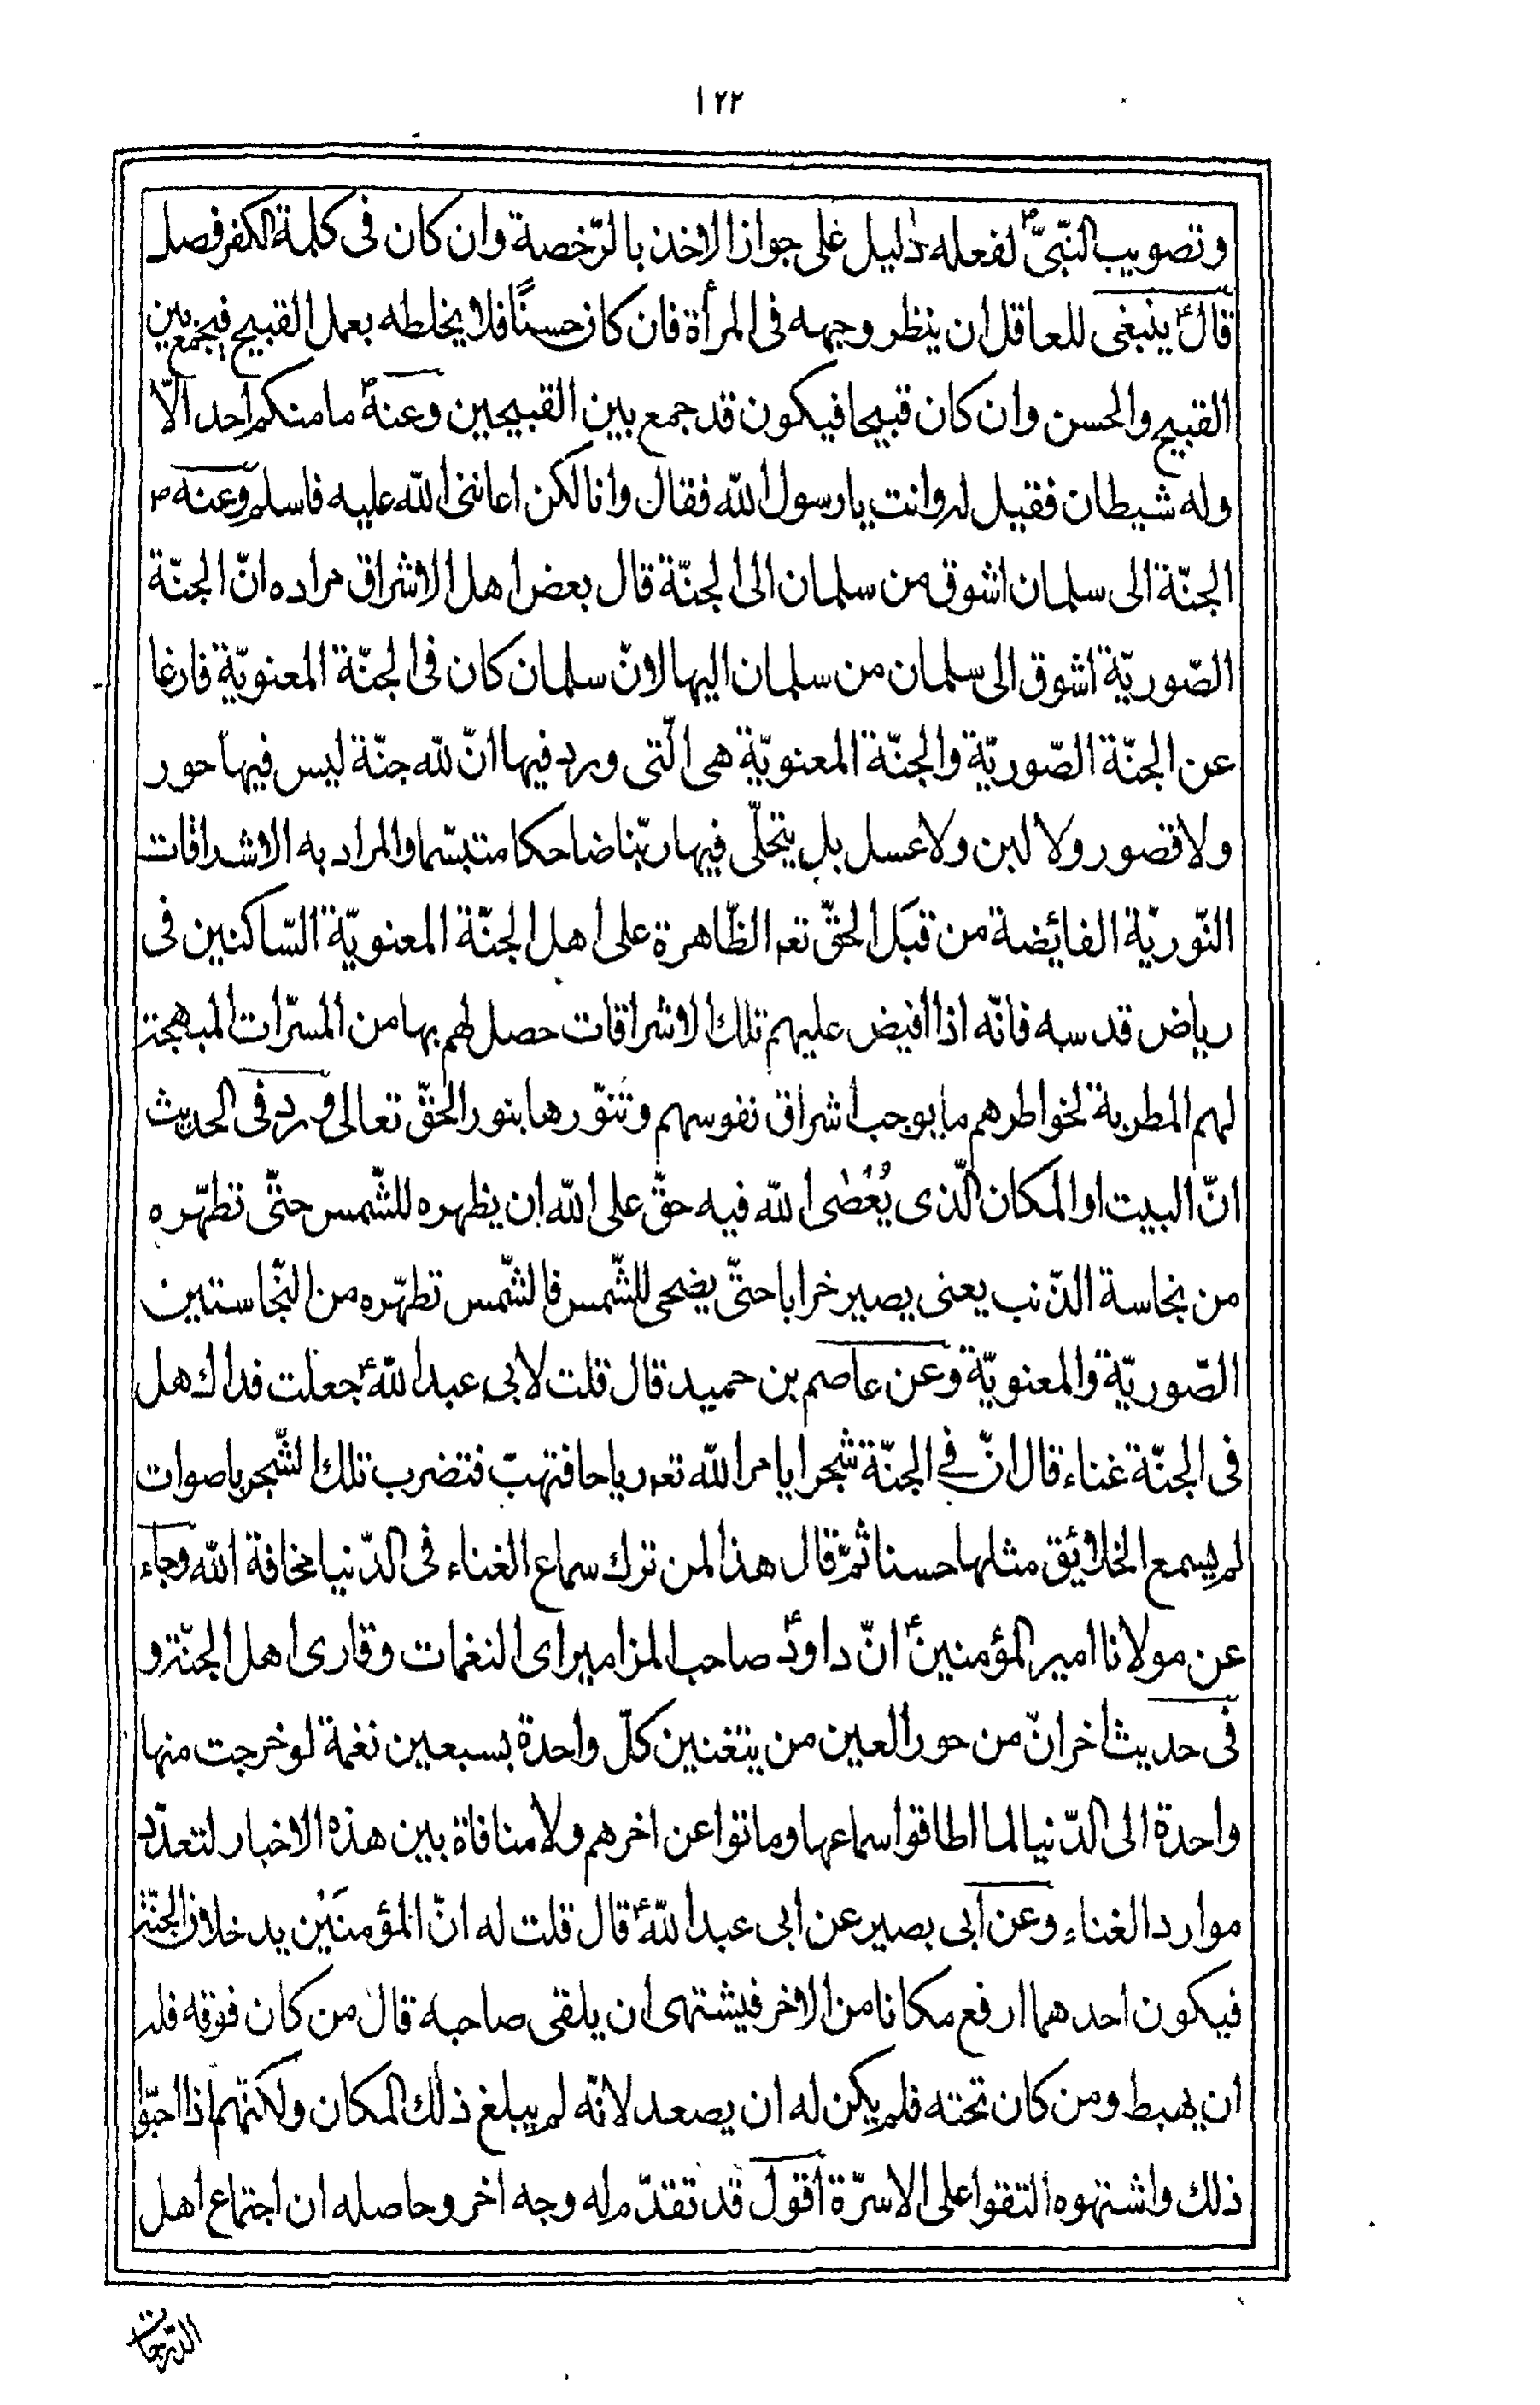 ١٢٢
وتصويب النّبىّ ص لفعله دليل على جواز الاخذ بالرّخصة وان كان فى كلمة الكفر فصل
قال ع ينبغى للعاقل ان ينظر وجهه فى المرأة فان كان حسنًا فلا يخلطه بعمل القبيح فيجمع بين
القبيح والحسن وان كان قبيحا فيكون قد جمع بين القبيحين وعنه ص ما منكم احد الّا
وله شيطان فقيل له وانت يا رسول الله فقال وانا لكن اعاننى الله عليه فاسلم وعنه ص
الجنّة الى سلمان اشوق من سلمان الى الجنّة قال بعض اهل الاشراق مراده انّ الجنّة
الصّوريّة اشوق الى سلمان من سلمان اليها لانّ سلمان كان فى الجنّة المعنويّة فارغا
عن الجنّة الصّوريّة والجنّة المعنويّة هى الّتى ورد فيها انّ لله جنّة ليس فيها حور
ولا قصور ولا لبن ولا عسل بل يتجلّى فيها ربّنا ضاحكا متبسّما والمراد به الاشراقات
النّوريّة الفائضة من قبَل الحقّ تعه الظّاهرة على اهل الجنّة المعنويّة السّاكنين فى
رياض قدسه فانّه اذا افيض عليهم تلك الاشراقات حصل لهم بها من المسرّات المبهجة
لهم المطربة لخواطرهم ما يوجب اشراق نفوسهم وتنوّرها بنور الحقّ تعالى وورد فى الحديث
انّ البيت او المكان الّذى يُعْصٰى الله فيه حقّ على الله ان يظهره للشّمس حتّى تطهّره
من نجاسة الذّنب يعنى يصير خرابا حتّى يضحى للشّمس فالشّمس تطهّره من النّجاستين
الصّوريّة والمعنويّة وعن عاصم بن حميد قال قلت لابى عبد الله ع جعلت فداك هل
فى الجنّة غناء قال انّ فى الجنّة شجرا يامر الله تعه رياحا فتهبّ فتضرب تلك الشّجر باصوات
لم يسمع الخلائق مثلها حسنا ثمّ قال هذا لمن ترك سماع الغناء فى الدّنيا مخافة الله وجاء
عن مولانا امير المؤمنين ع انّ داود ع صاحب المزامير اى النغمات وقارى اهل الجنّة و
فى حديث اخر انّ من حور العين من يتغنين كلّ واحدة بسبعين نغمة لو خرجت منها
واحدة الى الدّنيا لما اطاقوا سماعها وماتوا عن اخرهم ولا منافاة بين هذه الاخبار لتعدّد
موارد الغناء وعن ابى بصير عن ابى عبد الله ع قال قلت له انّ المؤمنَيْن يدخلان الجنّة
فيكون احدهما ارفع مكانا من الاخر فيشتهى ان يلقى صاحبه قال من كان فوقه فله
ان يهبط ومن كان تحته فلم يكن له ان يصعد لانّه لم يبلغ ذلك المكان ولكنّهم اذا احبّوا
ذلك واشتهوه التقوا على الاسرّة اقول قد تقدّم له وجه اخر وحاصله ان اجتماع اهل
الدّرجات